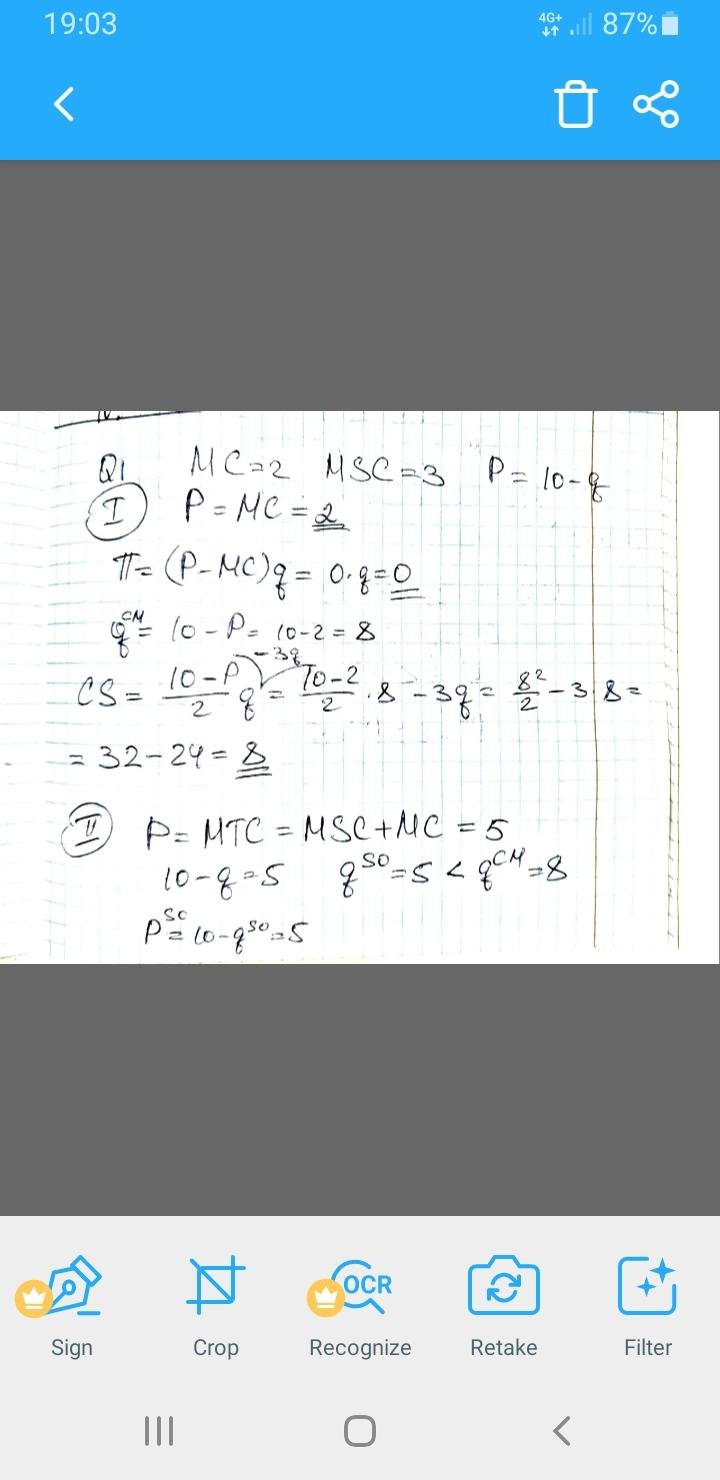 19:03 4G+ 87%
Q1 MC=2 MSC=3 P=10-q
I P=MC=2
π=(P-MC)q=0·q=0
q^CM=10-P=10-2=8
-3q
CS=(10-P)/2 q=(10-2)/2·8-3q=8²/2-3·8=
=32-24=8
II P=MTC=MSC+MC=5
10-q=5 q^SO=5<q^CM=8
P^SO=10-q^SO=5
Sign Crop OCR Recognize Retake Filter